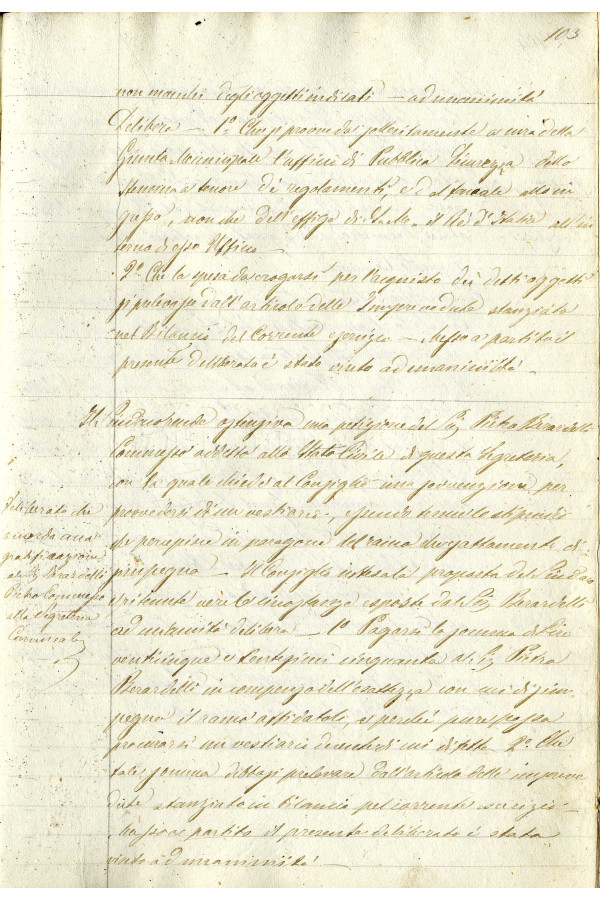 103
non manchi degli oggetti indicati — ad unanimità
Delibera — 1° Che si provveda sollecitamente a cura della
Giunta Municipale l'ufficio di Pubblica Sicurezza dello
Stemma a tenore de' regolamenti, e d al fanale allo in
gresso, non che dell'effige di S. M. il Rè d'Italia all'in
terno di esso Ufficio —
2° Che la spesa da erogarsi per l'acquisto dei detti oggetti
si prelevasse dall'articolo delle Imprevedute stanziato
nel Bilancio del Corrente esercizio — Messo a partito il
presente deliberato è stato vinto ad unanimità —
Il Sindaco rende ostensiva una petizione del Sig. Pietro Berardelli
Commesso addetto allo Stato Civile di questa Segreteria,
con la quale chiede al Consiglio una sovvenzione per
provvedersi di un vestiario, essendo tenue lo stipendio
che percepisce in paragone del ramo
disimpegna — Il Consiglio intesa la proposta del Sindaco
e ritenute vere le circostanze esposte dal Sig. Berardelli
ad unanimità delibera — 1° Pagarsi la somma di Lire
venticinque e Centesimi cinquanta al Sig. Pietro
Berardelli in compenso dell'esattezza con cui disim
pegna il ramo affidatole, e perchè pure possa
procurarsi un vestiario decente di cui difetta 2° Che
tale somma debbasi prelevare dall'articolo delle impreve
dute stanziato in bilancio pel corrente esercizio —
Messo a partito il presente deliberato è stato
vinto ad unanimità —
Deliberato che
accorda una
gratificazione
al Sig. Berardelli
Pietro Commesso
alla Segreteria
Comunale